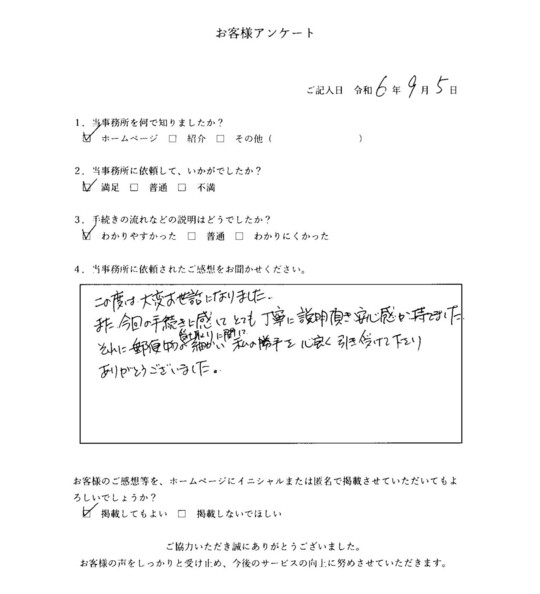 お客様アンケート
ご記入日 令和 6 年 9 月 5 日
1．当事務所を何で知りましたか？
☑ ホームページ □ 紹介 □ その他（ ）
2．当事務所に依頼して、いかがでしたか？
☑ 満足 □ 普通 □ 不満
3．手続きの流れなどの説明はどうでしたか？
☑ わかりやすかった □ 普通 □ わかりにくかった
4．当事務所に依頼されたご感想をお聞かせください。
この度は大変お世話になりました。
また 今回の手続きに感して とても 丁寧に説明頂き 安心感が持てました。
受け取りに関して
それに郵便物の細かい 私の勝手を 心良く 引き受けて下さり
ありがとうございました。
お客様のご感想等を、ホームページにイニシャルまたは匿名で掲載させていただいてもよ
ろしいでしょうか？
☑ 掲載してもよい □ 掲載しないでほしい
ご協力いただき誠にありがとうございました。
お客様の声をしっかりと受け止め、今後のサービスの向上に努めさせていただきます。